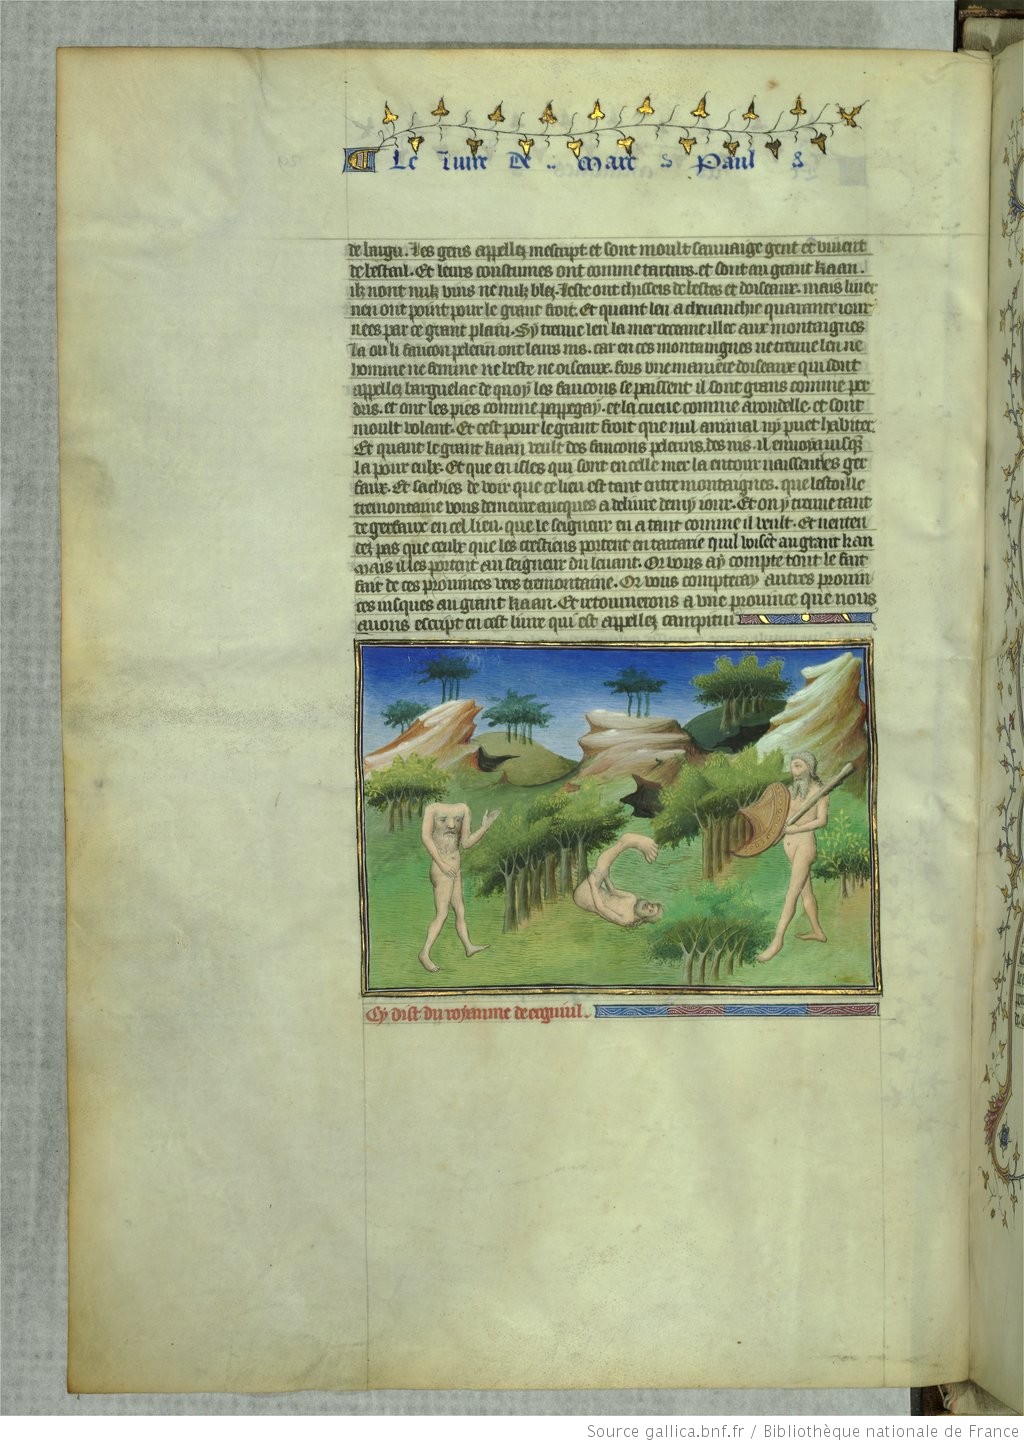 Le liure De Marc Paul
de largu. Les gens appellez mescript et sont moult sauuaige gent et viuent
de bestail. Et leurs coustumes ont comme tartars. et sont au grant kaan.
ilz nont nulz vins ne nulz blez. Leste ont chasses de bestes et doiseaux. mais liuer
nen ont point pour le grant froit. Et quant len a cheuauchie quarante iour
nees par ce grant plain. Sy treuue len la mer occeane illec aux montaignes
la ou li faucon pelerin ont leurs nis. car en ces montaingnes ne treuue len ne
homme ne femme ne beste ne oiseaux. fors vne maniere doiseaux qui sont
appellez barguelac de quoy les faucons se paissent il sont grans comme per
dris. et ont les pies comme pappegay. et la cueue comme arondelle. et sont
moult volant. Et cest pour le grant froit que nul animal ny puet habiter.
Et quant le grant kaan veult des faucons pelerins des nis. il enuoya iusqz
la pour eulx. Et que en isles qui sont en celle mer la entour naissent les ger
faux. Et sachies de voir que ce lieu est tant entre montaignes. que lestoille
tremontaine vous demeure aucques a deliure demy iour. Et on y treuue tant
de gerfaux en cel lieu. que le seigneur en a tant comme il veult. Et nenten
dez pas que ceulx que les crestiens portent en tartarie quil voisent au grant kan
mais il les portent au seigneur du leuant. Or vous ay compte tout le fait
fait de ces prouinces vers tremontaine. Or vous compteray autres prouin
ces iusques au grant kaan. Et retournerons a vne prouince que nous
auons escript en cest liure qui est appellez campitui
Cy dist du royaume de erguiul.
Source gallica.bnf.fr / Bibliothèque nationale de France